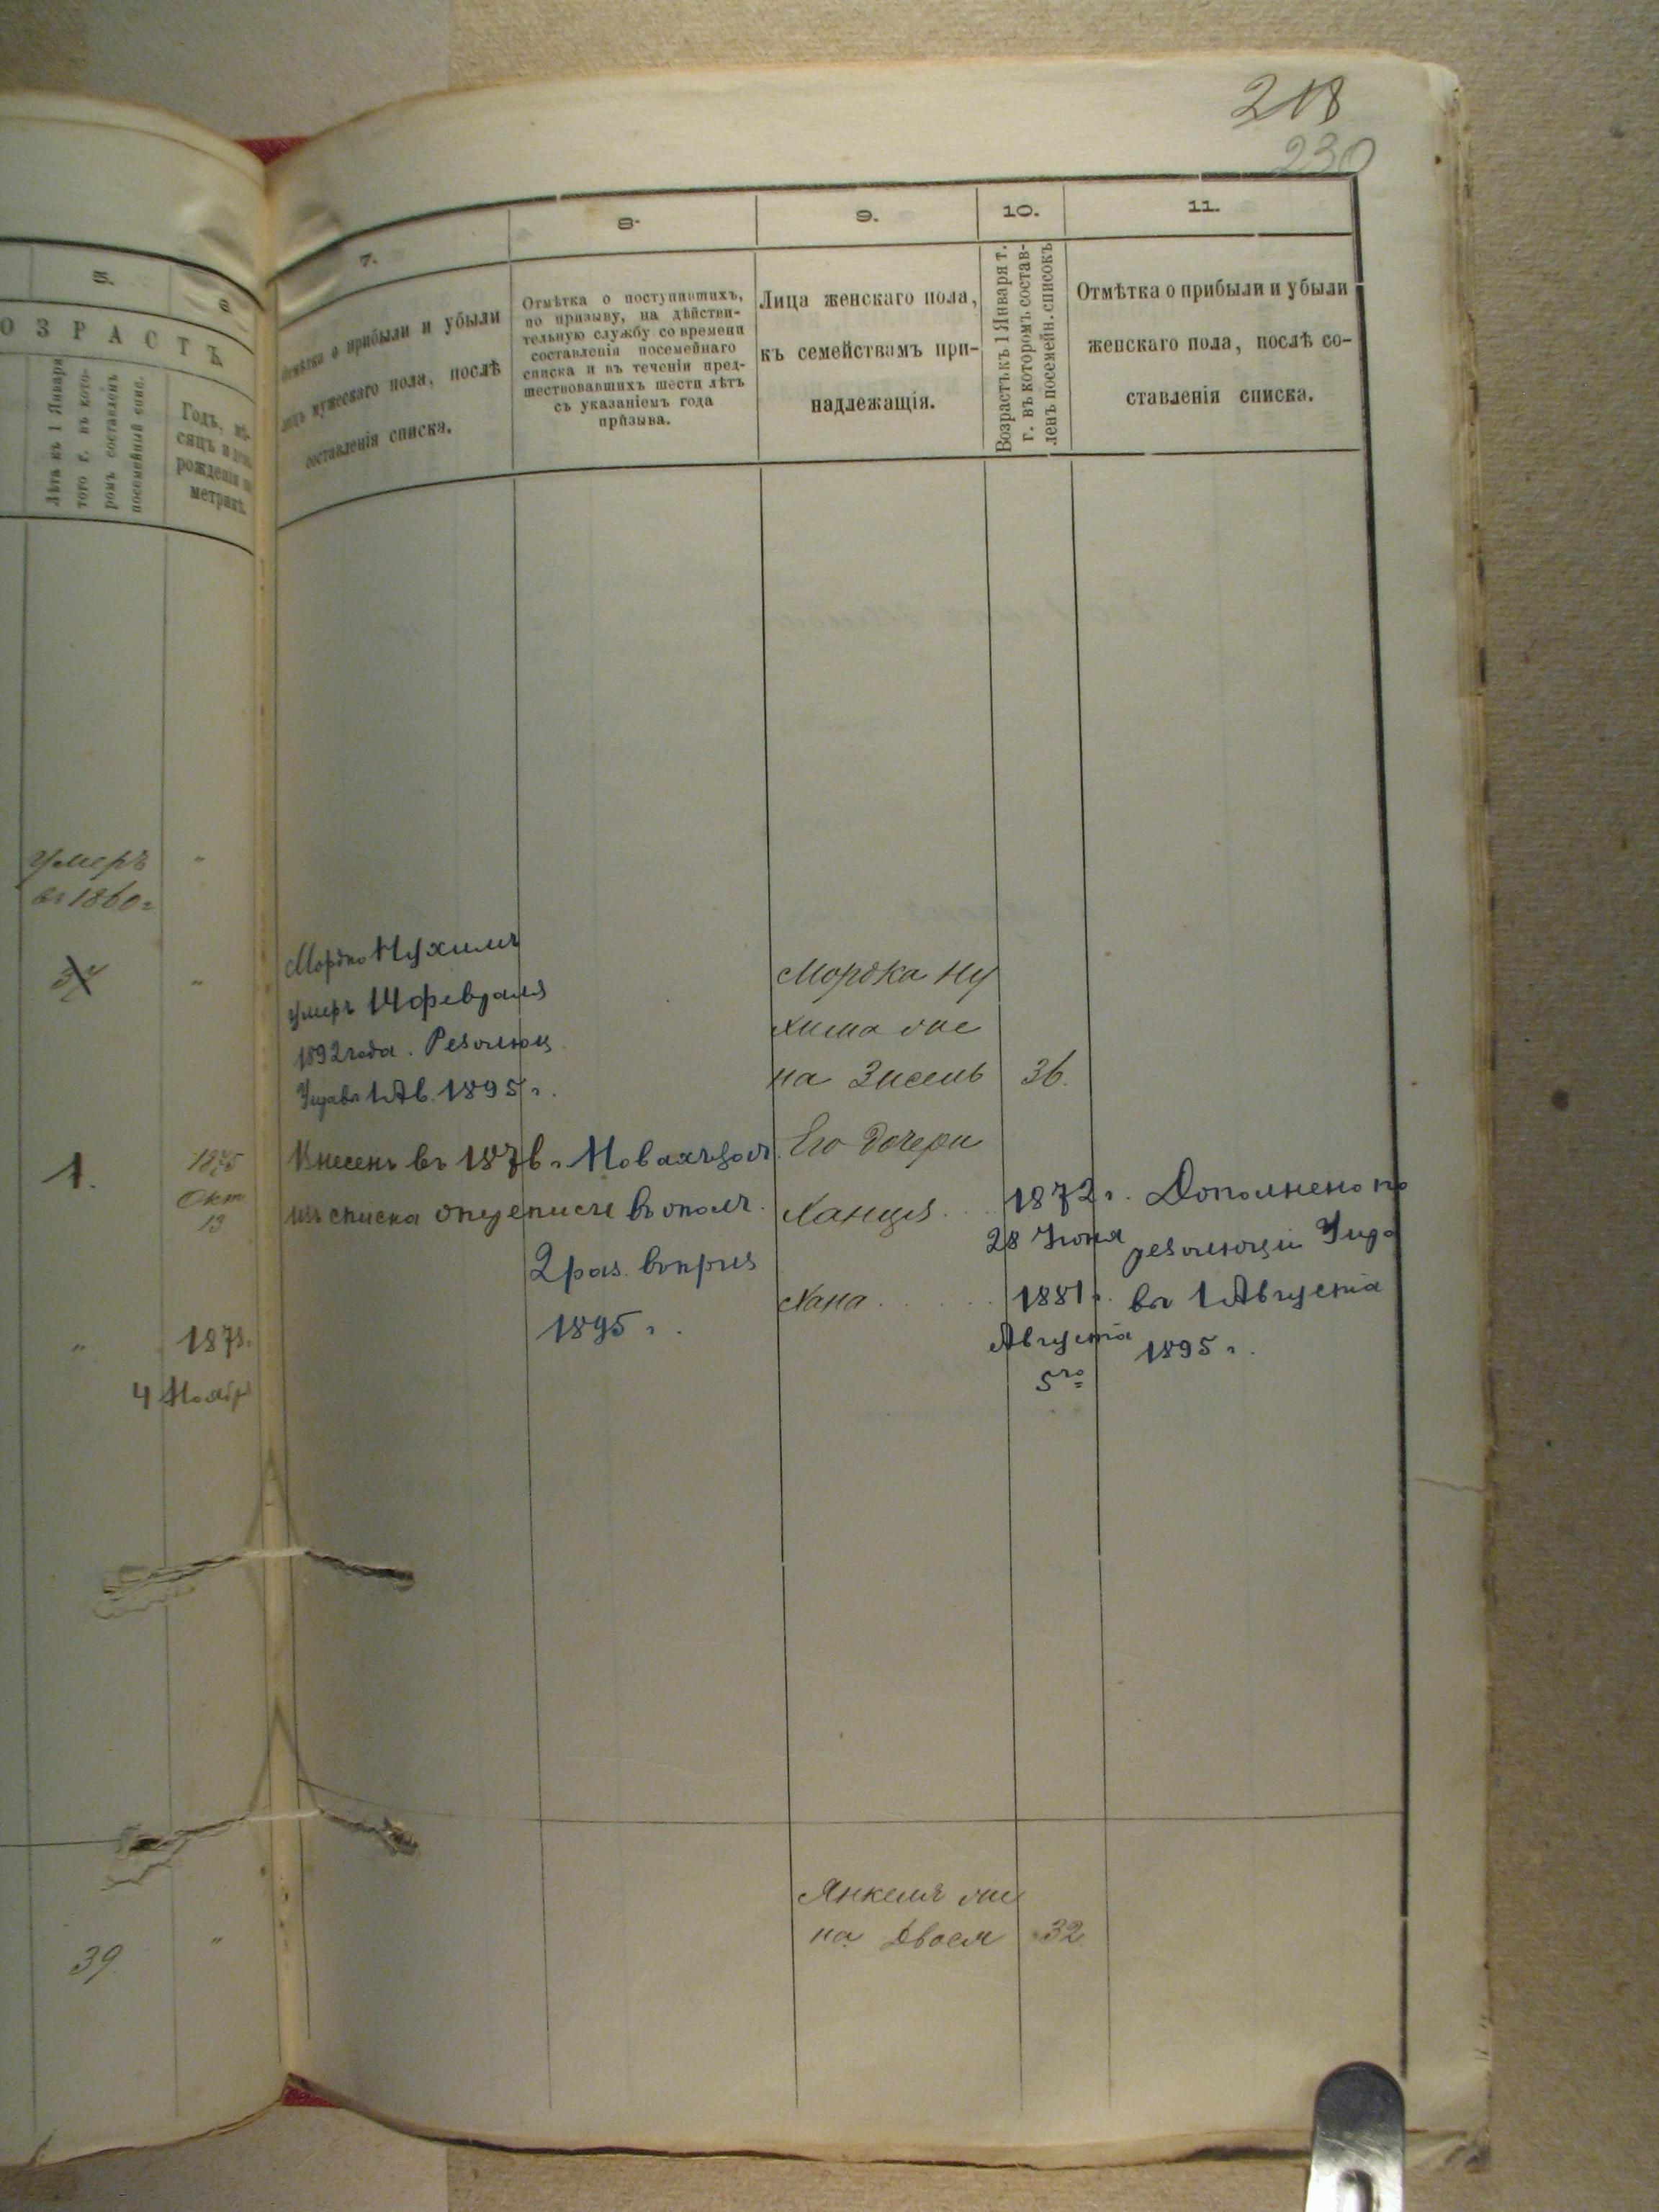 218
230
5.
6.
ОЗРАСТЪ
Лѣта къ 1 Января
того г. въ кото-
ромъ составленъ
посемейный спис.
Годъ, мѣ-
сяцъ и день
рожденія по
метрикѣ.
7.
Отмѣтка о прибыли и убыли
лицъ мужескаго пола, послѣ
составленія списка.
8.
Отмѣтка о поступившихъ,
по призыву, на дѣйстви-
тельную службу со времени
составленія посемейнаго
списка и въ теченіи пред-
шествовавшихъ шести лѣтъ
съ указаніемъ года
призыва.
9.
Лица женскаго пола,
къ семействамъ при-
надлежащія.
10.
Возрастъ къ 1 Января т.
г. въ которомъ состав-
ленъ посемейн. списокъ
11.
Отмѣтка о прибыли и убыли
женскаго пола, послѣ со-
ставленія списка.
умеръ
въ 1860 г
34
Мордко Нухимъ
умеръ 14 февраля
1892 года. Резолюц.
1 Ав. 1895 г.
Мордка Ну
хима же
на Зисель 36.
1.
1875
Окт
13
Внесенъ въ 1876 г
изъ списка
въ ополч.
2 раз. въ приз
1895 г.
Его дочери
Ханця . . . 1872 г.
28 Іюня
Хана . . . . . 1881 г.
Августа
5го
Дополнено по
резолюціи
1 Августа
1895 г.
" 1878 г.
4 Ноябр
39 "
Янкеля же
на Двося 32